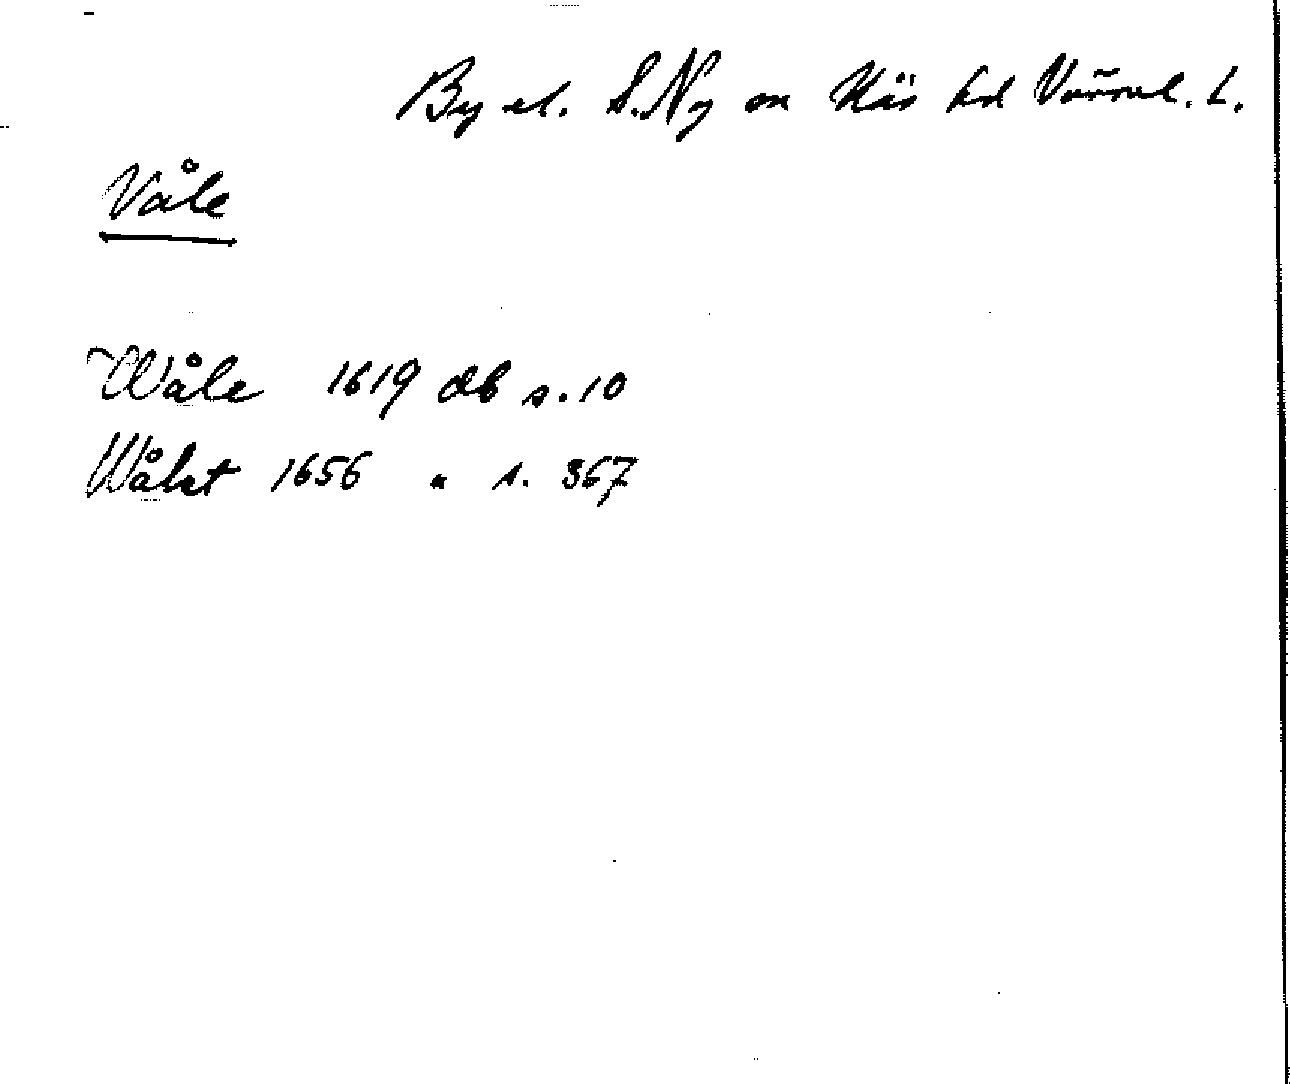 By el. S. Ny sn Näs hd Värml. L.
Våle
Wåle 1619 db s. 10
Wålet 1656 " s. 367